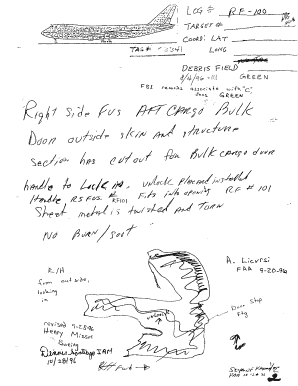 LOG # RF-100
TARGET #
COORD: LAT
TAG# 2341 LONG
DEBRIS FIELD
GREEN
FBI records associate with "C"
zone GREEN
Right Side Fus AFT CARGO Bulk
Door outside skin and structure
Section has cutout for Bulk cargo door
handle to Lock
Handle R.S Fus # RF101 Fits into opening RF #101
Sheet metal is twisted and Torn
NO Burn/soot
R/H
from outside,
looking
in
A. Lievrsi
FAA 9-20-96
Door Stop
Ftg
revised 9-25-96
Henry
Boeing
IAM
10/28/96
Fwd